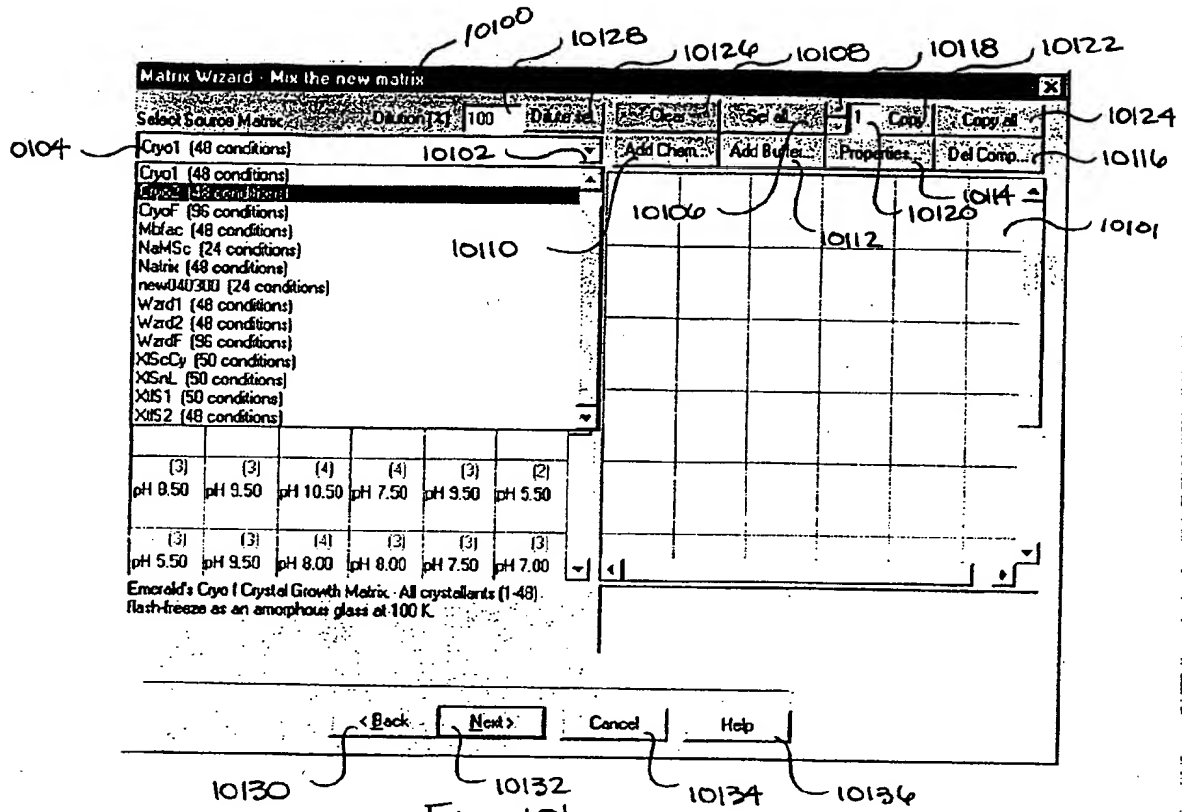 10100
10128
10126
10108
10118
10122
Matrix Wizard - Mix the new matrix
Select Source Matrix
Dilution [%]
100
Dilute sel.
Clear
Sel all...
1
Copy
Copy all
10124
0104
Cryo1 (48 conditions)
10102
Add Chem...
Add Buffer...
Properties...
Del Comp...
10116
Cryo1 (48 conditions)
Cryo2 (48 conditions)
CryoF (96 conditions)
Mbfac (48 conditions)
NaMSc (24 conditions)
Natrix (48 conditions)
new040300 (24 conditions)
Wzrd1 (48 conditions)
Wzrd2 (48 conditions)
WzrdF (96 conditions)
XlScCy (50 conditions)
XlSnL (50 conditions)
XtlS1 (50 conditions)
XtlS2 (48 conditions)
10110
10106
10112
10120
10114
10101
(3) (3) (4) (4) (3) (2)
pH 8.50 pH 9.50 pH 10.50 pH 7.50 pH 9.50 pH 5.50
(3) (3) (4) (3) (3) (3)
pH 5.50 pH 9.50 pH 8.00 pH 8.00 pH 7.50 pH 7.00
Emerald's Cryo I Crystal Growth Matrix - All crystallants (1-48)
flash-freeze as an amorphous glass at 100 K.
< Back
Next >
Cancel
Help
10130
10132
10134
10136